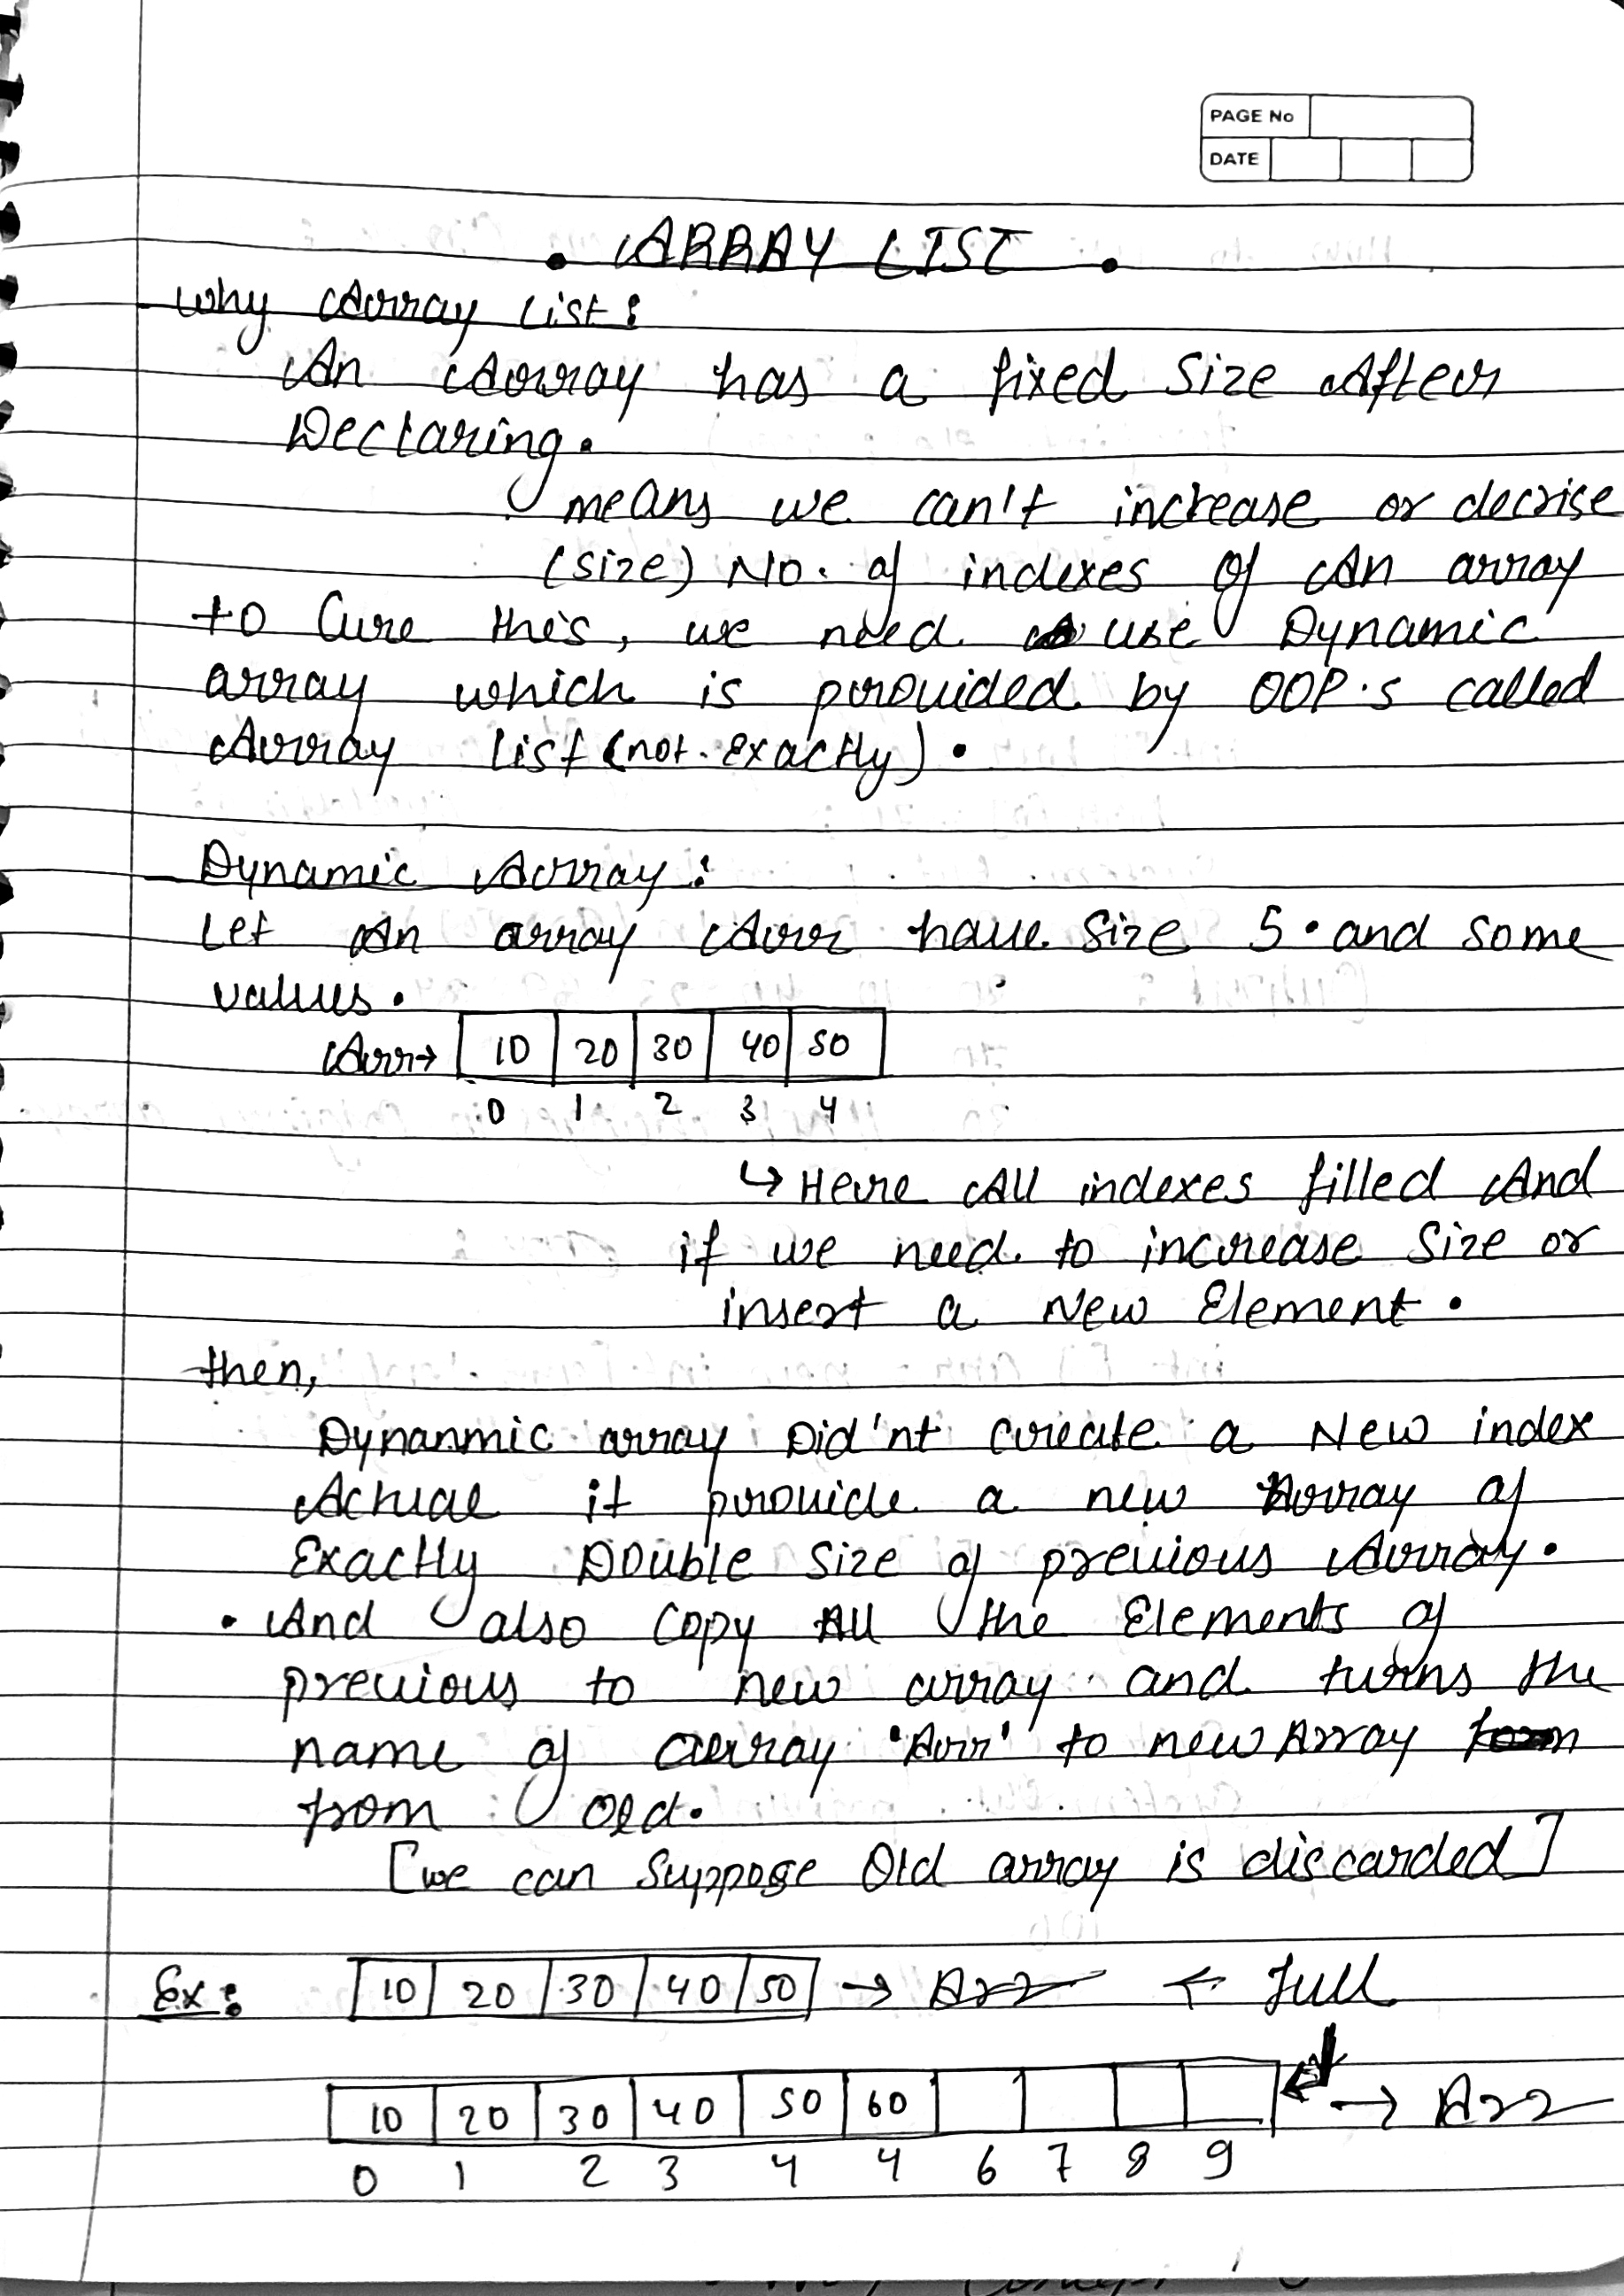 PAGE No
DATE
. ARRAY LIST .
Why Array List :
An Array has a fixed Size After
Declaring.
means we can't increase or decrise
(size) No. of indexes of An array
to Cure this, we need use Dynamic
array which is provided by OOP.s called
Array list (not Exactly).
Dynamic Array :
Let An array Arr have Size 5. and some
values.
Arr→ 10 20 30 40 50
0 1 2 3 4
↳ Here All indexes filled And
if we need to increase Size or
insert a New Element.
then,
Dynanmic array Did'nt create a New index
Actual it provide a new Array of
Exactly Double Size of previous Array.
. And also Copy All the Elements of
previous to new array and turns the
name of array 'Arr' to new Array
from Old.
[we can Suppose Old array is discarded]
Ex : 10 20 30 40 50 → Arr ← Full
10 20 30 40 50 60 → Arr
0 1 2 3 4 4 6 7 8 9